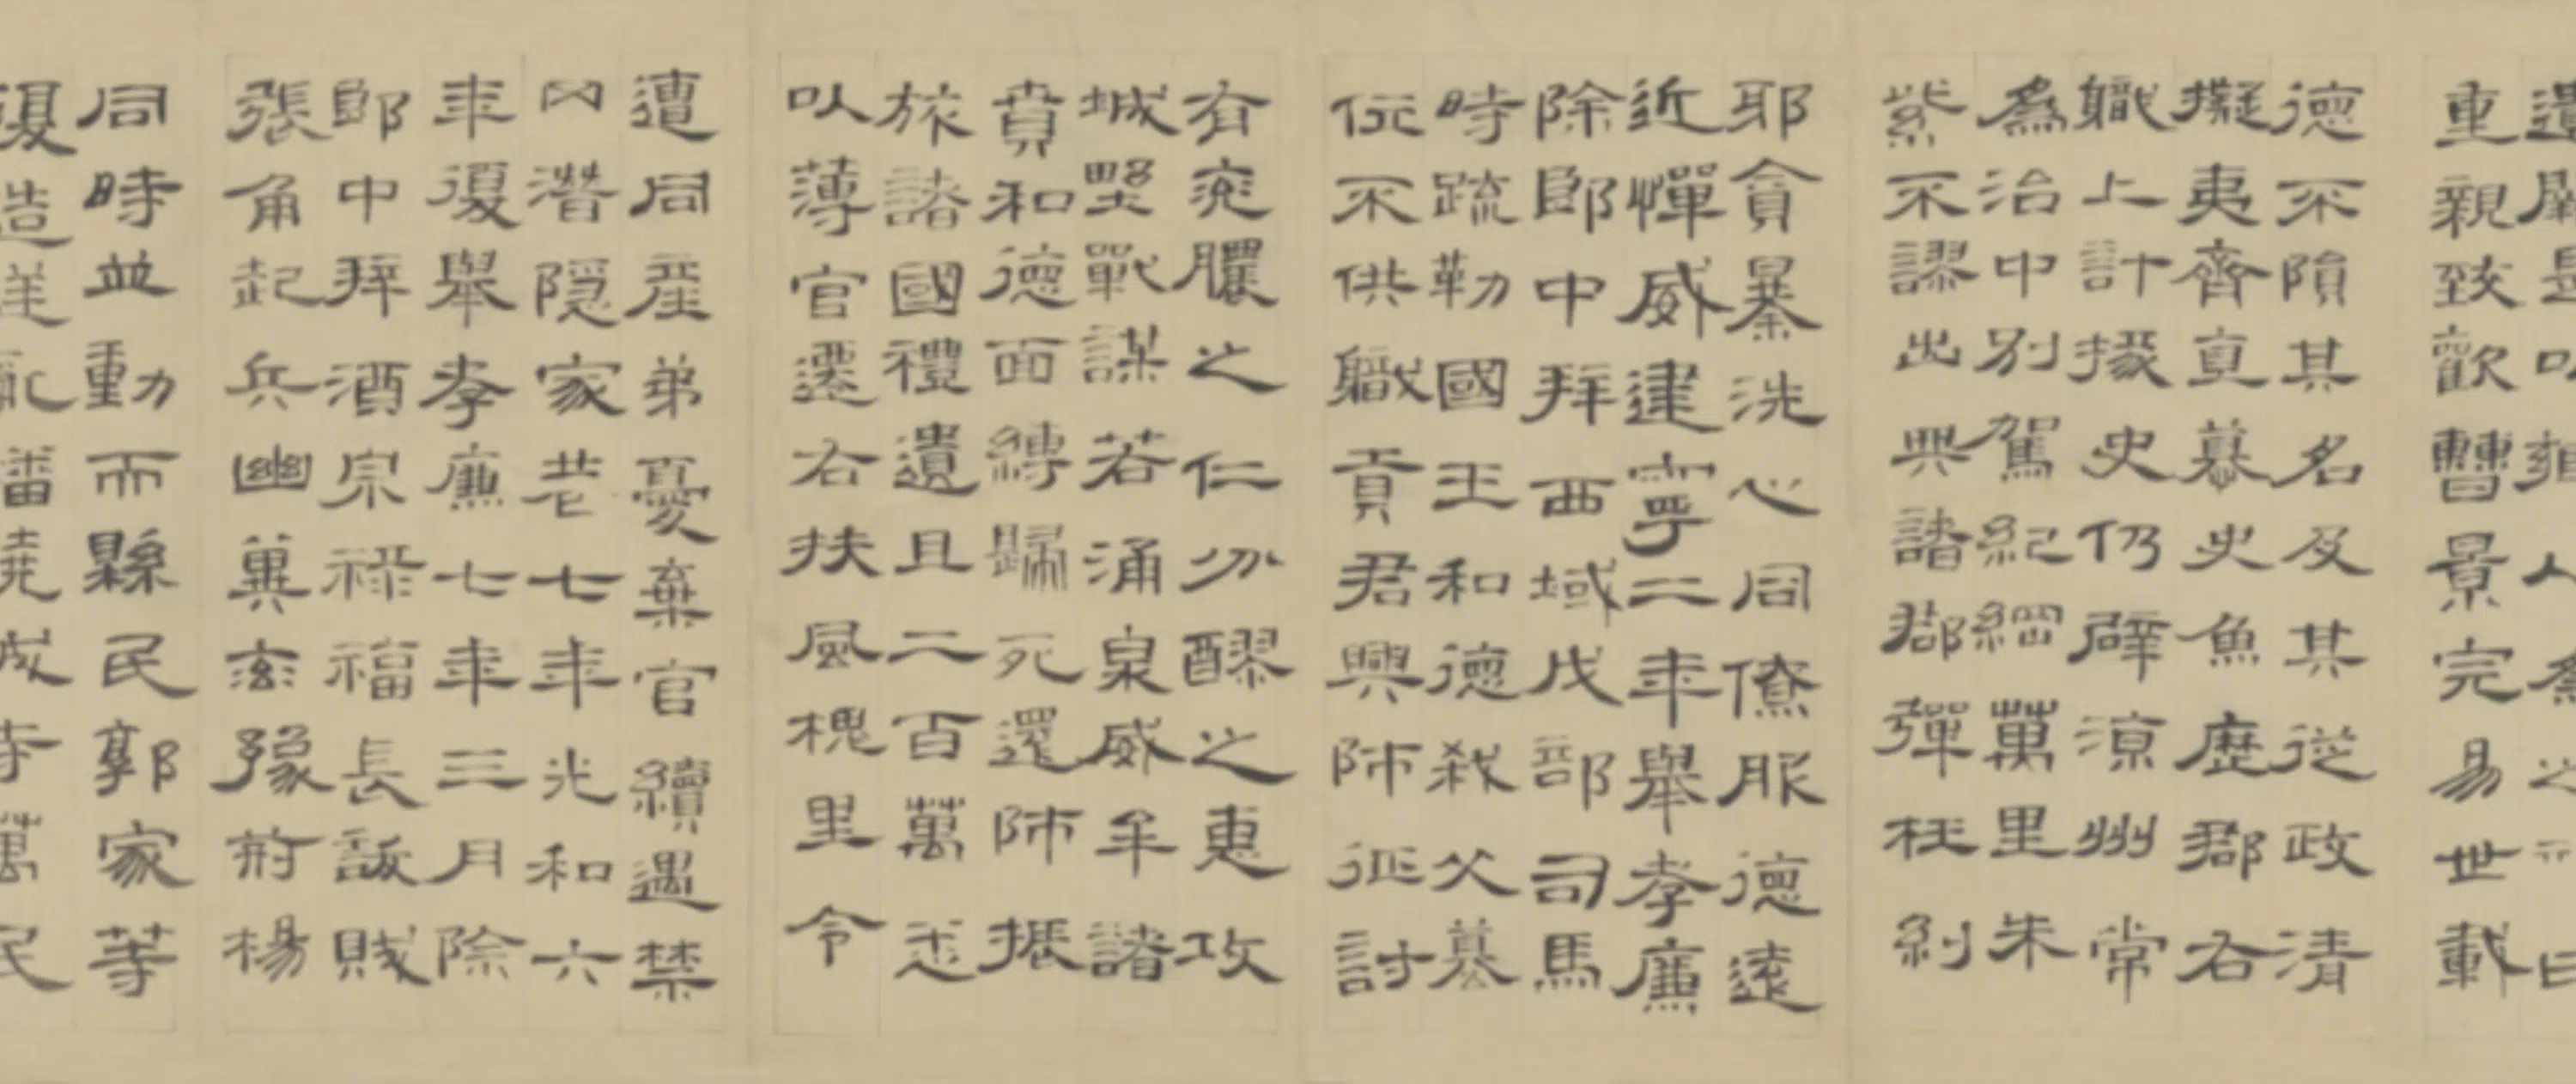 遺闕是以鄉人為之諺曰
重親致歡曹景完易世載
德不隕其名及其從政清
擬夷齊直慕史魚歷郡右
職上計掾史仍辟涼州常
為治中別駕紀綱萬里朱
紫不謬出典諸郡彈枉糾
邪貪暴洗心同僚服德遠
近憚威建寧二年舉孝廉
除郎中拜西域戊部司馬
時疏勒國王和德弒父篡
位不供職貢君興師征討
有兗膿之仁分醪之惠攻
城野戰謀若涌泉威牟諸
賁和德面縛歸死還師振
旅諸國禮遺且二百萬悉
以薄官遷右扶風槐里令
遭同產弟憂棄官續遇禁
罔潛隱家巷七年光和六
年復舉孝廉七年三月除
郎中拜酒泉祿福長訞賊
張角起兵幽冀兗豫荊楊
同時並動而縣民郭家等
復造逆亂燔燒城寺萬民